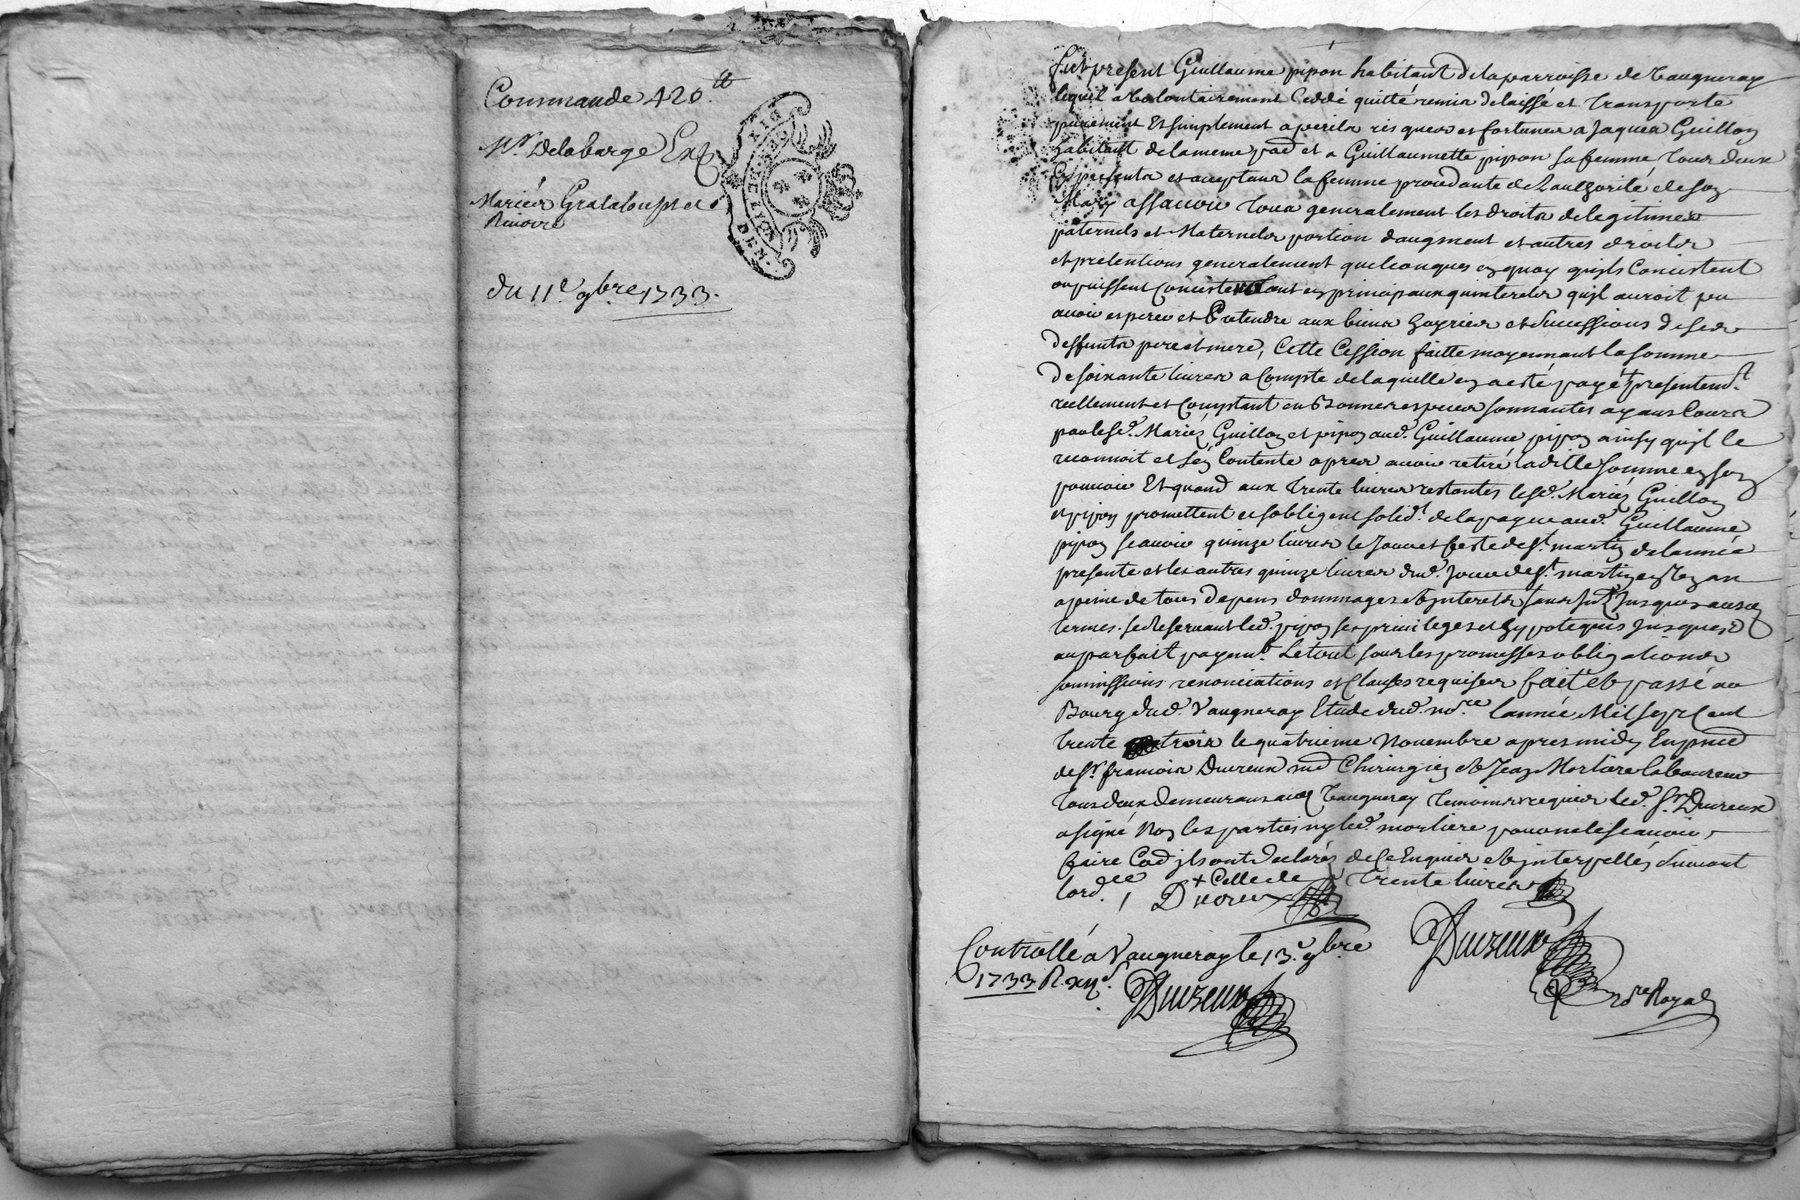 Commande 420 ₶
Mr Delabarge Exp
Mariés Grataloup et
Rivoire
du 11e 9bre 1733.
GEN. DE LYON
Fut present Guillaume pipon habitant de la parroisse de Vaugneray
lequel a volontairement Ceddé quitté remis delaissé et Transporté
purement Et simplement a perils risques et fortunes a Jaques Guillon
habitant de la meme par et a Guillaumette pipon sa femme Tous deux
Cy presents et aceptans la femme procedante de L'authorité de son
Mary assavoir Tous generalement les droits de legitimes
paternels et Maternels portion d'augment et autres droits
et pretentions generalement quelconques en quoy qu'ils Concistent
ou puissent Concister Tant en principaux qu'interets qu'il auroit peu
avoir esperer et Pretendre aux biens hoyries et Successions de ses
deffunts pere et mere, Cette Cession faitte moyennant la somme
de soixante livres a Compte de laquelle en a esté payé + presentemt.
reellement et Comptant en Bonnes especes sonnantes ayans Cours
par lesd. Mariés Guillon et pipon aud. Guillaume pipon ainsy qu'jl le
reconnoit et s'en Contente apres avoir retiré laditte somme en son
pouvoir Et quand aux Trente livres restantes lesd. Mariés Guillon
et pipon promettent et s'obligent solidt. de la payer aud. Guillaume
pipon scavoir quinze livres le Jour et feste de St. martin de l'année
presente et les autres quinze livres dud. Jour de St. martin en Un an
a peine de tous depens dommages et jnterets sans jnt. Jusques ausd.
termes. se Reservant led. pipon ses privileges et hypoteques Jusques
au parfait payemt. Le tout sous les promesses obligations
soumissions renonciations et Clauses requises fait et passé au
Bourg dud. Vaugneray Etude dud. nore. l'année Mil sept Cent
trente trois le quatrieme Novembre apres midy En pnce
de Sr. francois Dureux md Chirurgien et Jean Mortiere laboureur
Tous deux demeurans aud. Vaugneray Temoins requis led. Sr. Dureux
a signé Non les parties ny led. mortiere pour ne le scavoir
faire Cod jls ont declarés de Ce Enquis et jnterpellés Suivant
l'ordce. / Dureux + Celle de Trente livres
Controllé a Vaugneray le 13e 9bre
1733 R. xijs. Dureux
Dureux nore Royal